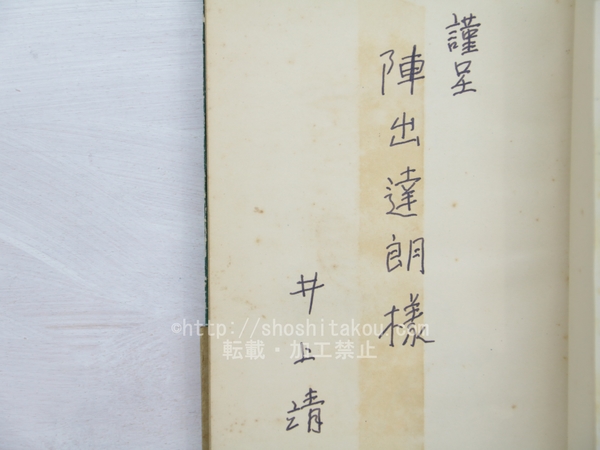 謹呈
陣出達朗様
井上靖
©http://shoshitakou.com
転載・加工禁止